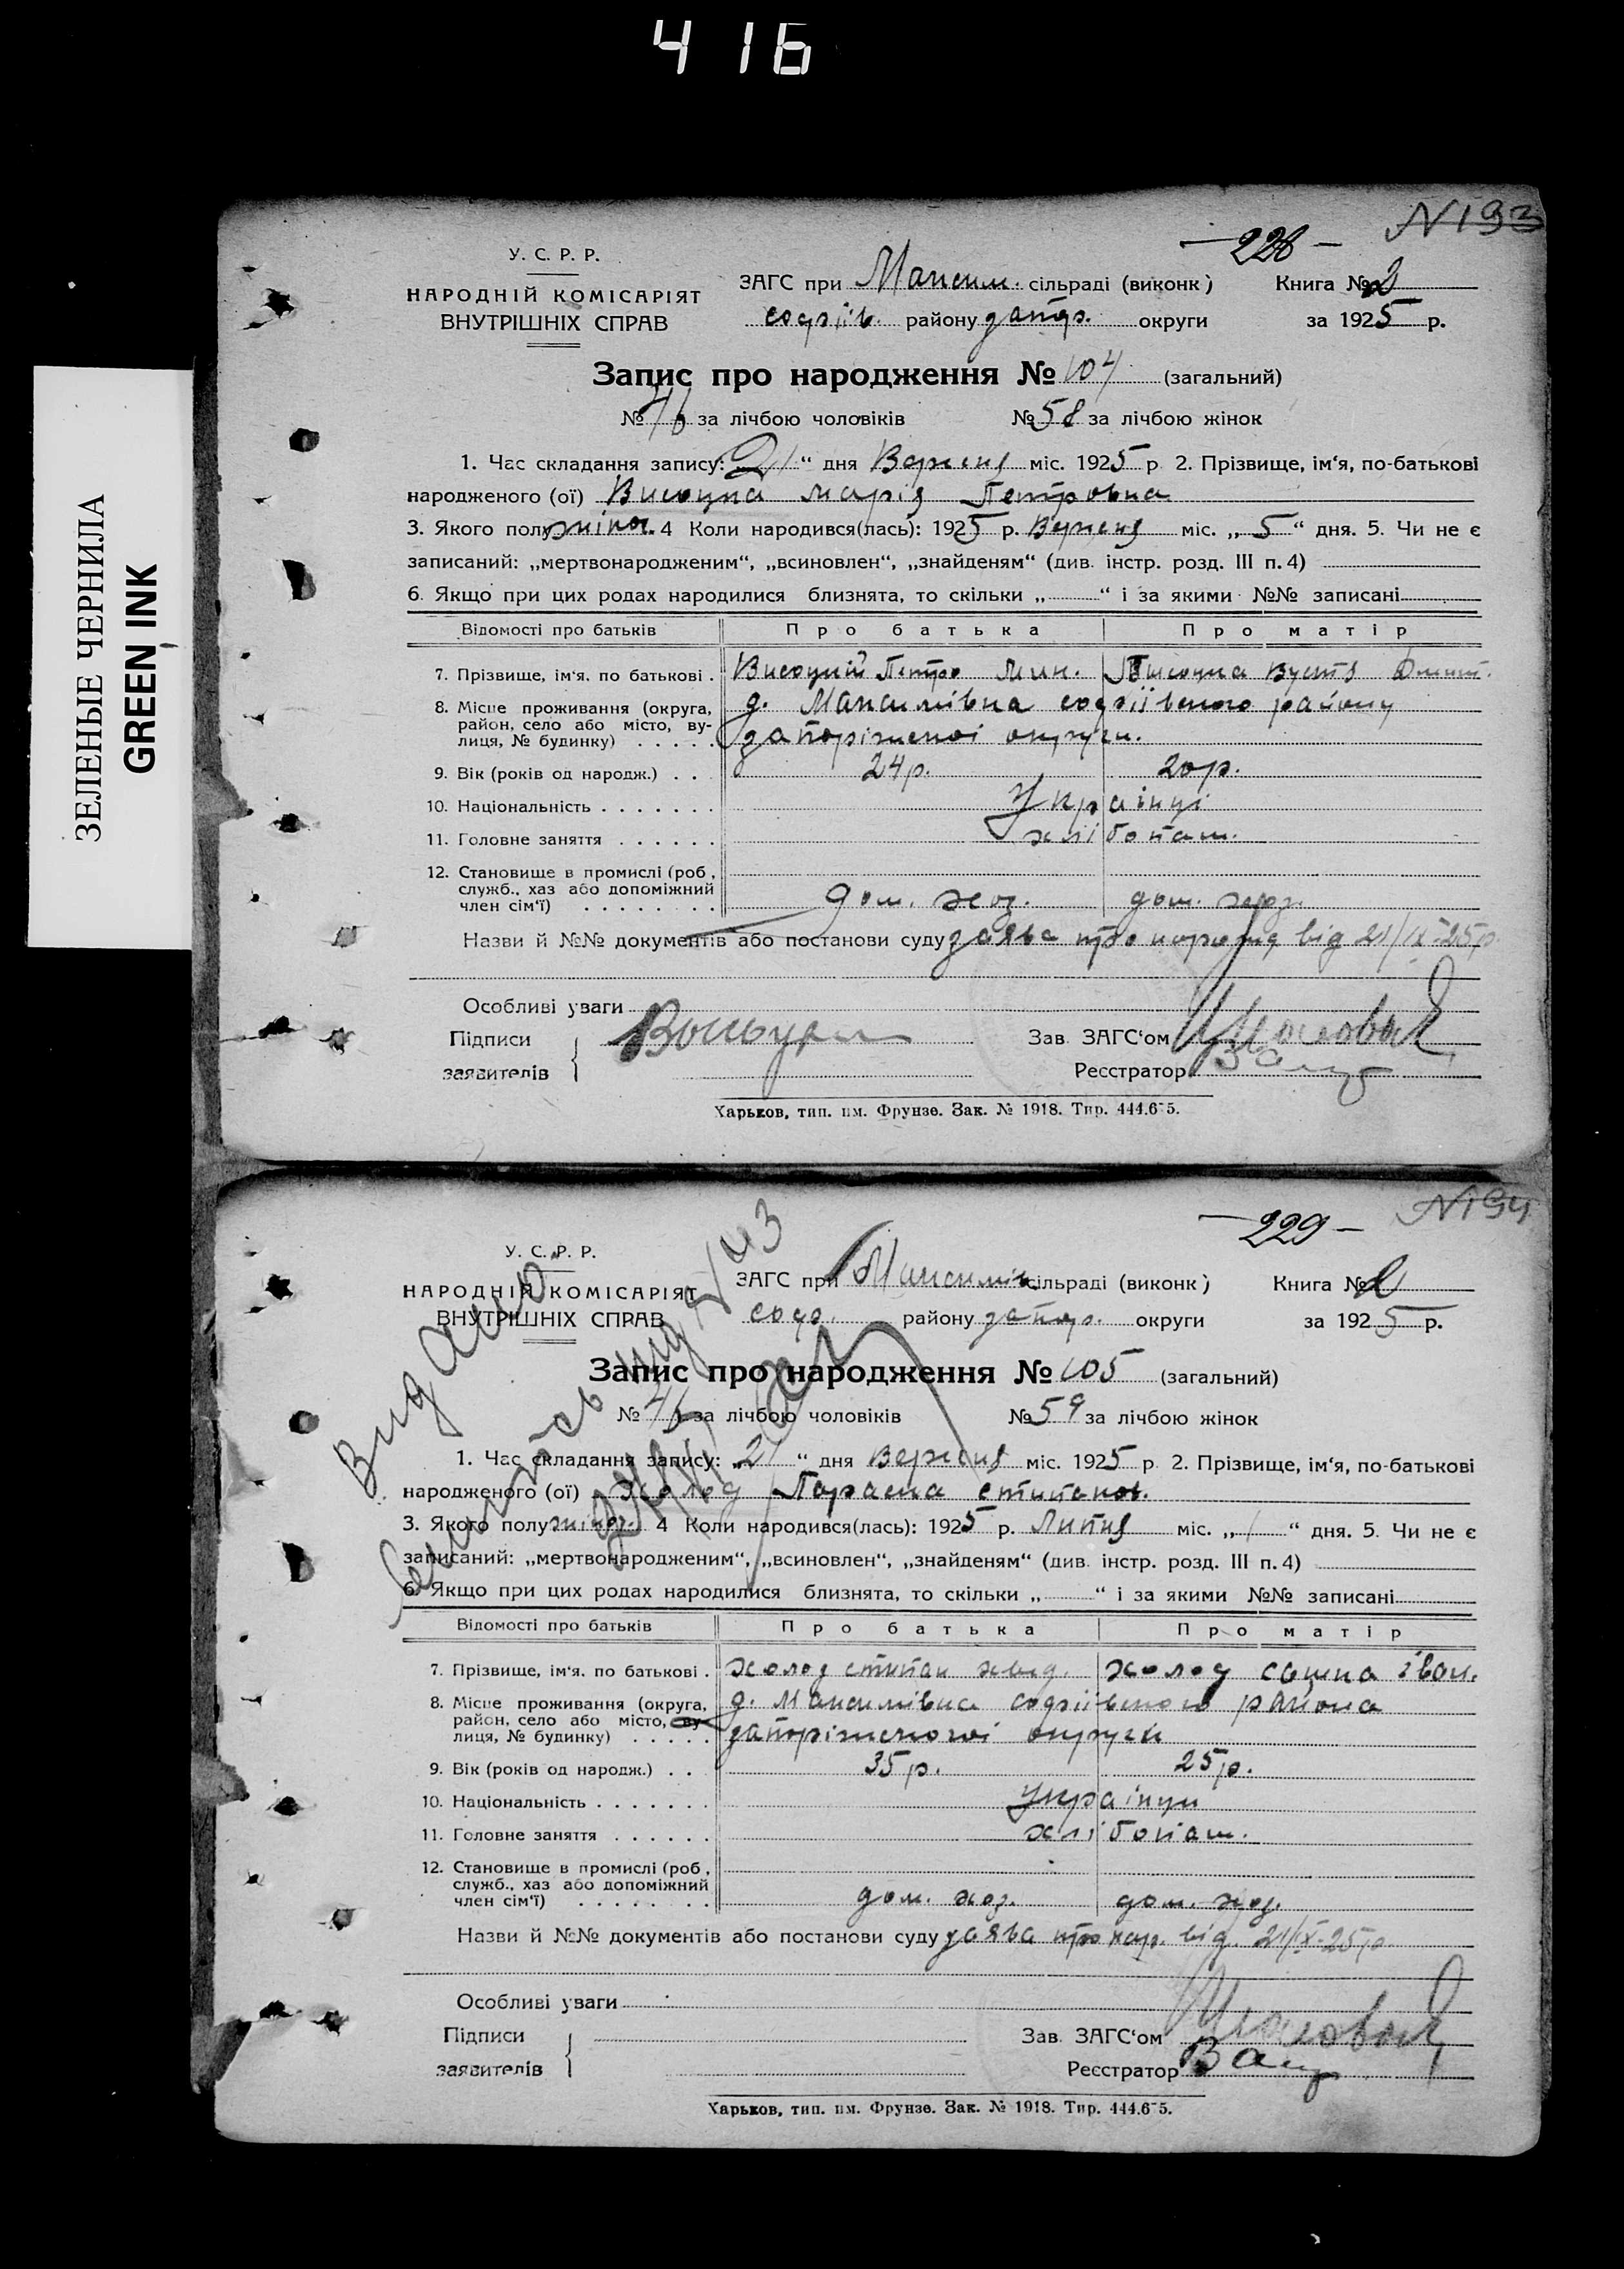 416
ЗЕЛЕНЫЕ ЧЕРНИЛА
GREEN INK
N193
—228—
У. С. Р. Р.
НАРОДНІЙ КОМІСАРІЯТ
ВНУТРІШНІХ СПРАВ
ЗАГС при Максим. сільраді (виконк) Книга № 2
софіїв. району запор. округи за 1925 р.
Запис про народження № 104 (загальний)
№ 46 за лічбою чоловіків № 58 за лічбою жінок
1. Час складання запису: „21“ дня Верісня міс. 1925 р. 2. Прізвище, ім‘я, по-батькові
народженого (ої) Висоцка Марія Петровна
3. Якого полу жіноч. 4 Коли народився(лась): 1925 р. Верісня міс. „5“ дня. 5. Чи не є
записаний: „мертвонародженим“, „всиновлен“, „знайденям“ (див. інстр. розд. III п. 4)
6. Якщо при цих родах народилися близнята, то скільки „ “ і за якими №№ записані
Відомості про батьків Про батька Про матір
7. Прізвище, ім‘я, по батькові . Висоцкий Петро Мик. Висоцка Вустя Дмит.
8. Місце проживання (округа, с. Максимівка софіївского району
район, село або місто, ву-
лиця, № будинку) . . . . . запоріжскоі округи.
9. Вік (років од народж.) . . . 24 р. 20 р.
10. Національність . . . . . . . Українці
11. Головне заняття . . . . . . хлібопаш.
12. Становище в промислі (роб.,
служб., хаз або допоміжний
член сім‘ї) . . . . . . . . дом. хоз. дом. хоз.
Назви й №№ документів або постанови суду заява про народ від 21/IX-25р.
Особливі уваги
Підписи Зав. ЗАГС‘ом
заявителів Реєстратор
Харьков, тип. им. Фрунзе. Зак. № 1918. Тир. 444.675.
N194
—229—
У. С. Р. Р.
НАРОДНІЙ КОМІСАРІЯТ
ВНУТРІШНІХ СПРАВ
Видано
ЗАГС при Максимів сільраді (виконк) Книга № 2
соф. району запор. округи за 1925 р.
Запис про народження № 105 (загальний)
№ 46 за лічбою чоловіків № 59 за лічбою жінок
1. Час складання запису: „21“ дня Верісня міс. 1925 р. 2. Прізвище, ім‘я, по-батькові
народженого (ої) Холод Параска Степанов.
3. Якого полу жіноч. 4 Коли народився(лась): 1925 р. Липня міс. „1“ дня. 5. Чи не є
записаний: „мертвонародженим“, „всиновлен“, „знайденям“ (див. інстр. розд. III п. 4)
6. Якщо при цих родах народилися близнята, то скільки „ “ і за якими №№ записані
Відомості про батьків Про батька Про матір
7. Прізвище, ім‘я, по батькові . Холод степан Холод Іван.
8. Місце проживання (округа, с. Максимівка софіївского района
район, село або місто, ву-
лиця, № будинку) . . . . . запоріжскоі округи
9. Вік (років од народж.) . . . 35 р. 25 р.
10. Національність . . . . . . . Українци
11. Головне заняття . . . . . . хлібопаш.
12. Становище в промислі (роб.,
служб., хаз або допоміжний
член сім‘ї) . . . . . . . . дом. хоз. дом. хоз.
Назви й №№ документів або постанови суду заява про нар. від. 21/IX-25р.
Особливі уваги
Підписи Зав. ЗАГС‘ом
заявителів Реєстратор
Харьков, тип. им. Фрунзе. Зак. № 1918. Тир. 444.675.